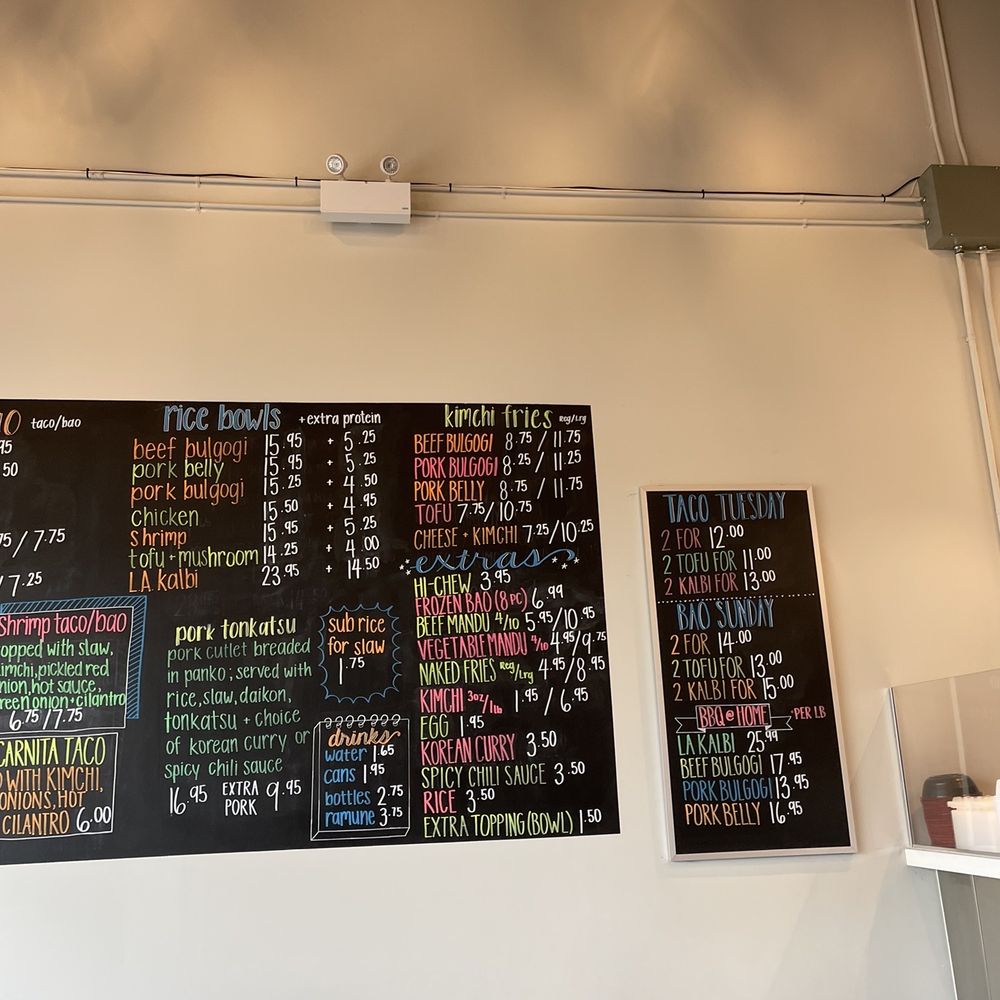 taco/bao
95
50
75/7.75
/7.25
Shrimp taco/bao
opped with slaw,
imchi, pickled red
nion, hot sauce,
reen onion + cilantro
6.75/7.75
CARNITA TACO
D WITH KIMCHI,
ONIONS, HOT
CILANTRO 6.00
rice bowls + extra protein
beef bulgogi 15.95 + 5.25
pork belly 15.95 + 5.25
pork bulgogi 15.25 + 4.50
chicken 15.50 + 4.95
shrimp 15.95 + 5.25
tofu + mushroom 14.25 + 4.00
L.A. kalbi 23.95 + 14.50
pork tonkatsu
pork cutlet breaded
in panko; served with
rice, slaw, daikon,
tonkatsu + choice
of korean curry or
spicy chili sauce
16.95 EXTRA PORK 9.95
sub rice
for slaw
1.75
drinks
water 1.65
cans 1.95
bottles 2.75
ramune 3.75
kimchi fries Reg/Lrg
BEEF BULGOGI 8.75/11.75
PORK BULGOGI 8.25/11.25
PORK BELLY 8.75/11.75
TOFU 7.75/10.75
CHEESE + KIMCHI 7.25/10.25
extras
HI-CHEW 3.95
FROZEN BAO (8 PC) 6.99
BEEF MANDU 4/10 5.95/10.95
VEGETABLE MANDU 4/10 4.95/9.75
NAKED FRIES Reg/Lrg 4.95/8.95
KIMCHI 3oz/1lb 1.95/6.95
EGG 1.95
KOREAN CURRY 3.50
SPICY CHILI SAUCE 3.50
RICE 3.50
EXTRA TOPPING (BOWL) 1.50
TACO TUESDAY
2 FOR 12.00
2 TOFU FOR 11.00
2 KALBI FOR 13.00
BAO SUNDAY
2 FOR 14.00
2 TOFU FOR 13.00
2 KALBI FOR 15.00
BBQ @ HOME *PER LB
LA KALBI 25.99
BEEF BULGOGI 17.95
PORK BULGOGI 13.95
PORK BELLY 16.95